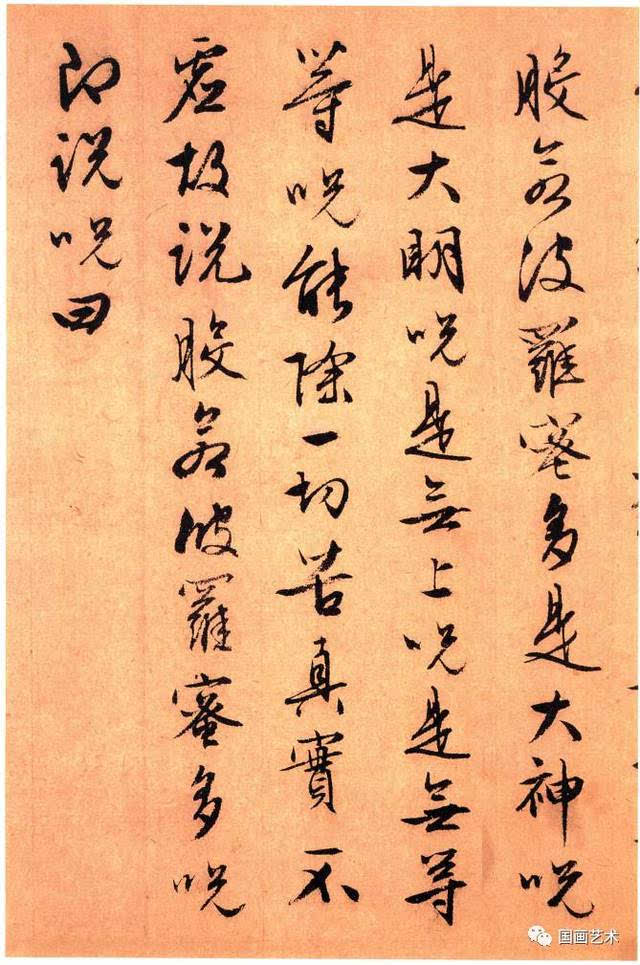 般若波羅蜜多是大神咒
是大明咒是無上咒是無等
等咒能除一切苦真實不
虛故說般若波羅蜜多咒
即說咒曰
国画艺术